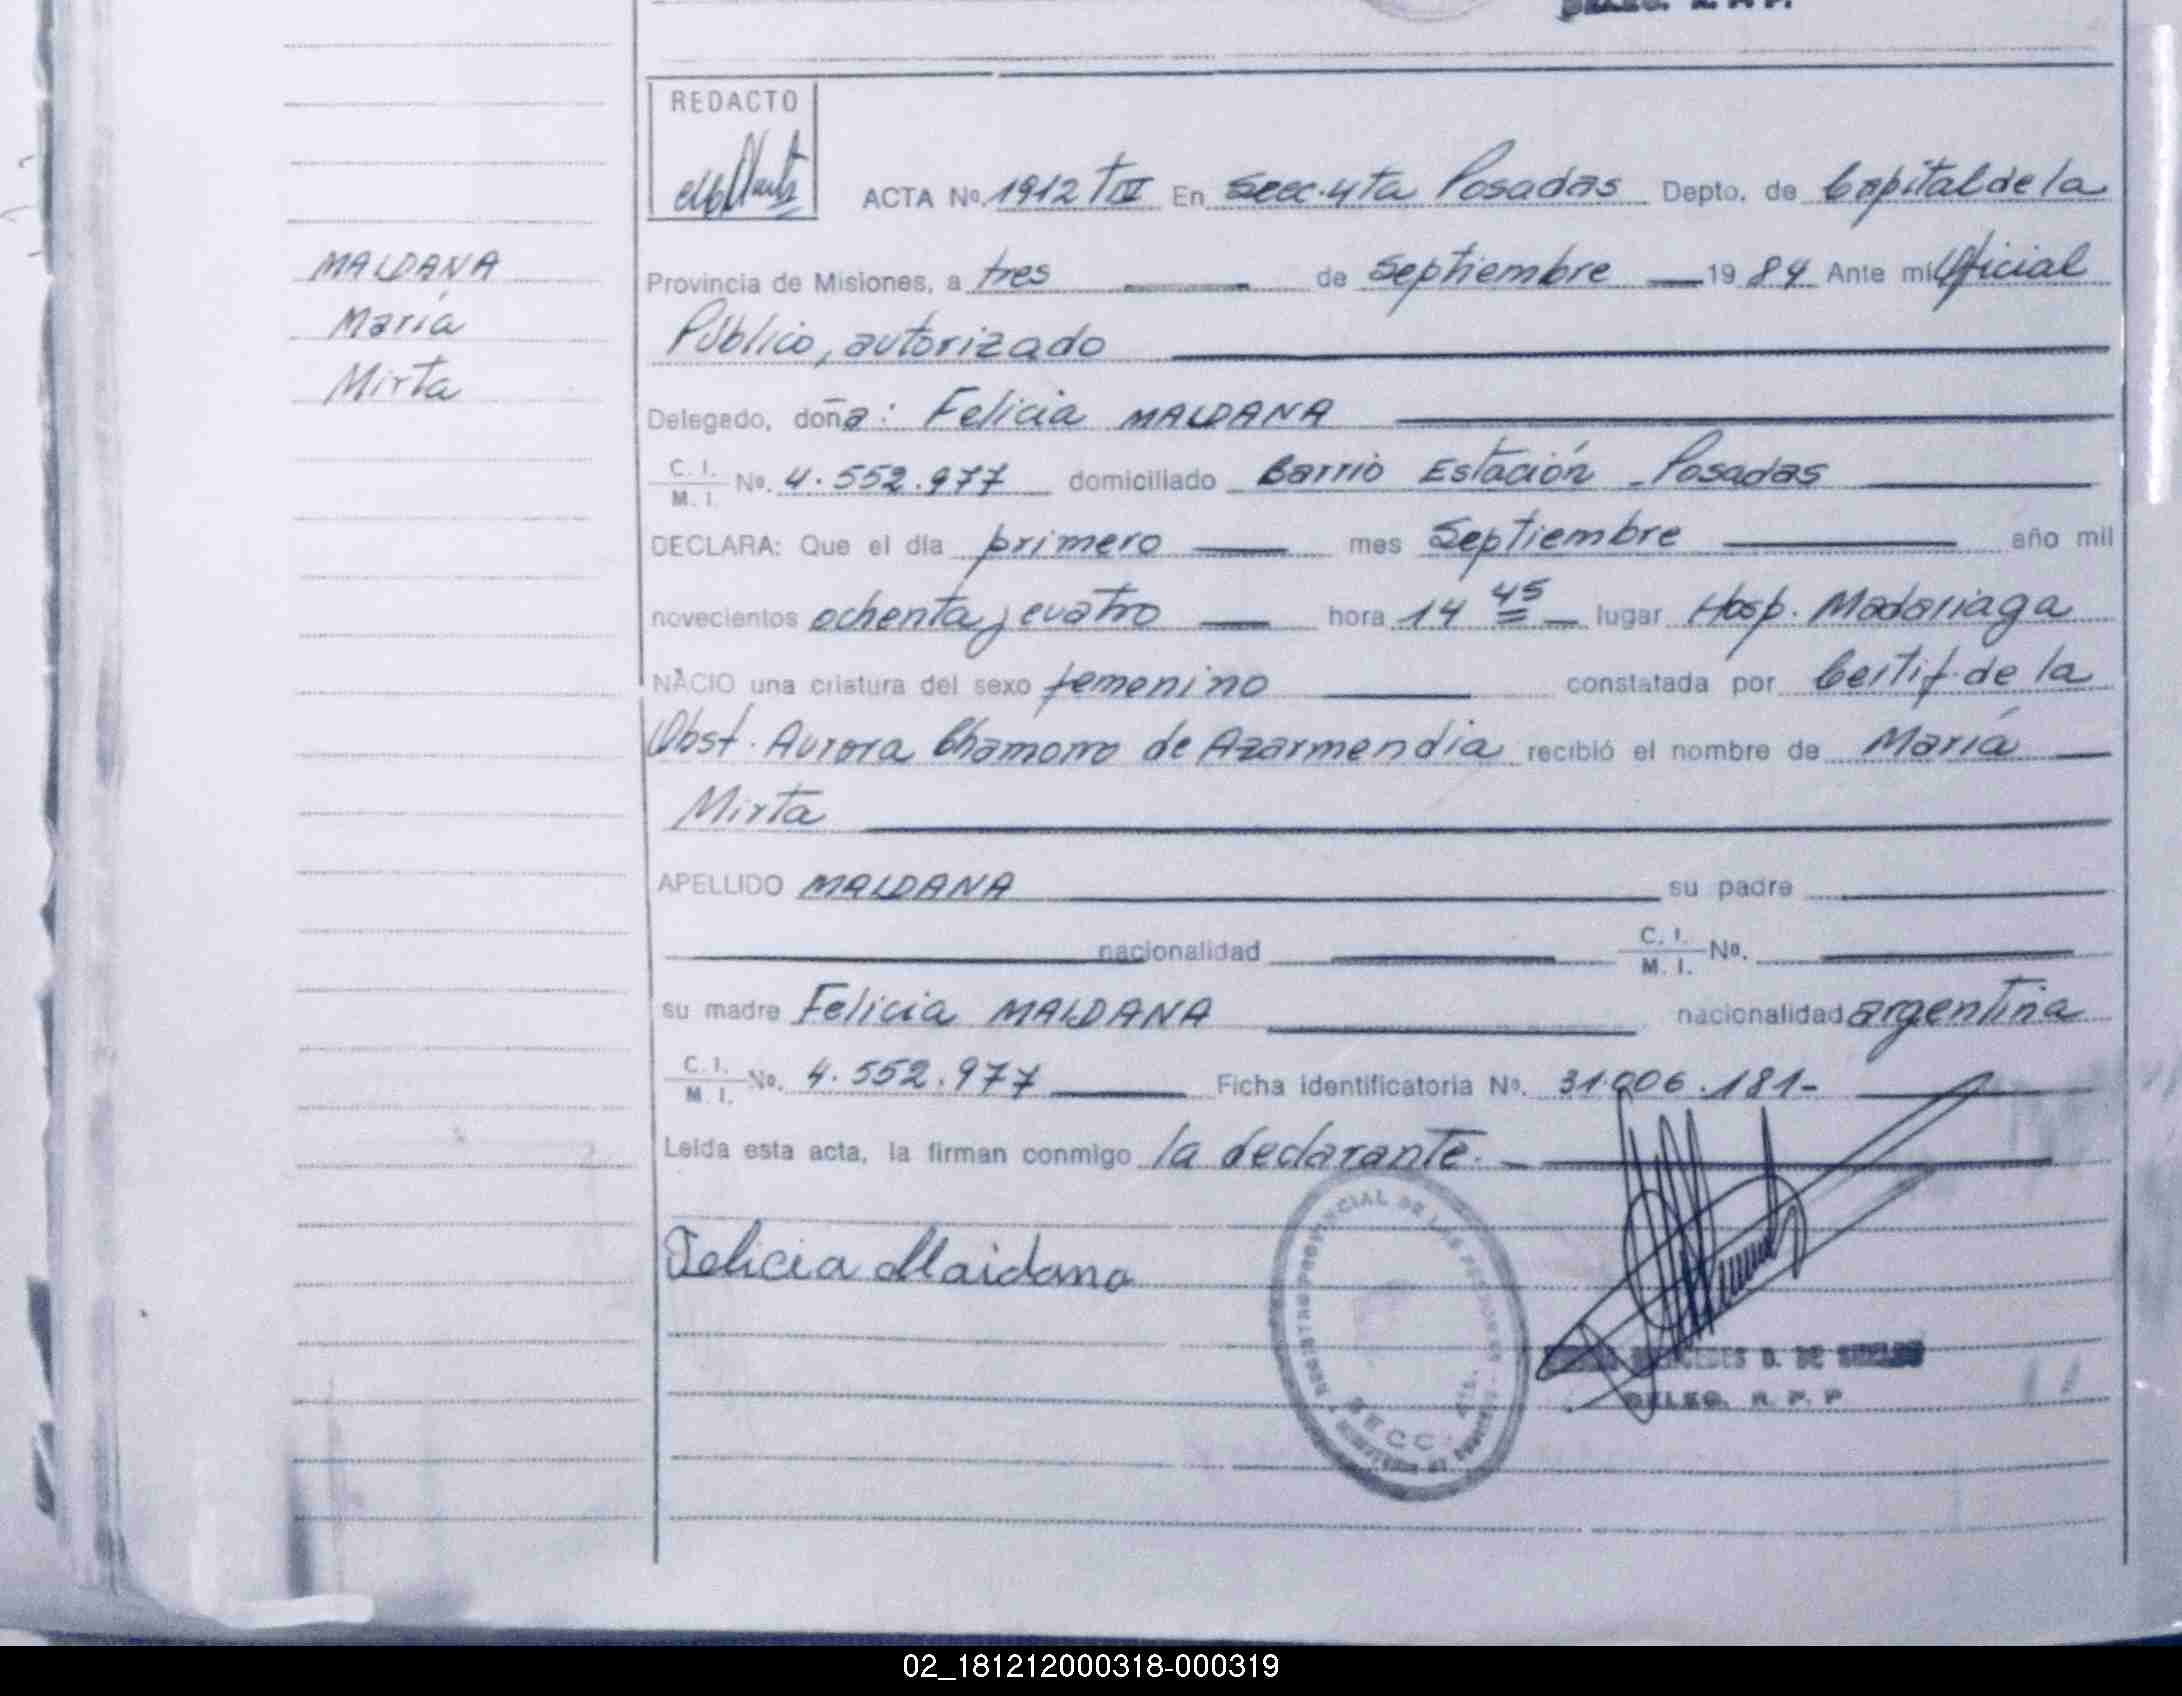 DELEG. R. P. P.
REDACTO
ACTA No. 1912 TIV En Secc. 4ta Posadas Depto. de Capital de la
MALDANA
Provincia de Misiones, a tres de Septiembre 1984 Ante mí Oficial
María
Público, autorizado
Mirta
Delegado, doña: Felicia MALDANA
C. I.
M. I. No. 4.552.977 domiciliado Barrio Estación - Posadas
DECLARA: Que el día primero mes Septiembre año mil
novecientos ochenta y cuatro hora 14 45 lugar Hosp. Madariaga
NACIO una criatura del sexo femenino constatada por Certif. de la
Obst. Aurora Chamorro de Azarmendia recibió el nombre de María
Mirta
APELLIDO MALDANA su padre
nacionalidad C. I. M. I. No.
su madre Felicia MALDANA nacionalidad argentina
C. I.
M. I. No. 4.552.977 Ficha identificatoria No. 31.006.181-
Leída esta acta, la firman conmigo la declarante.
Felicia Maidana
REGISTRO PROVINCIAL DE LAS PERSONAS
SECC. 4ta.
D. DE
DELEG. R. P. P
02_181212000318-000319